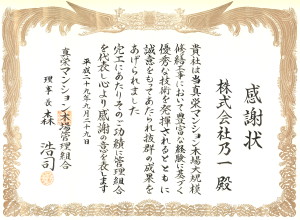 感謝状
株式会社乃一 殿
貴社は当真栄マンション木場大規模
修繕工事において豊富な経験に基づく
優秀な技術を発揮されるとともに
誠意をもってあたられ抜群の成果を
あげられました
完工にあたりそのご功績に管理組合
を代表し心より感謝の意を表します
平成二十九年九月二十九日
真栄マンション木場管理組合
理事長 森 浩司